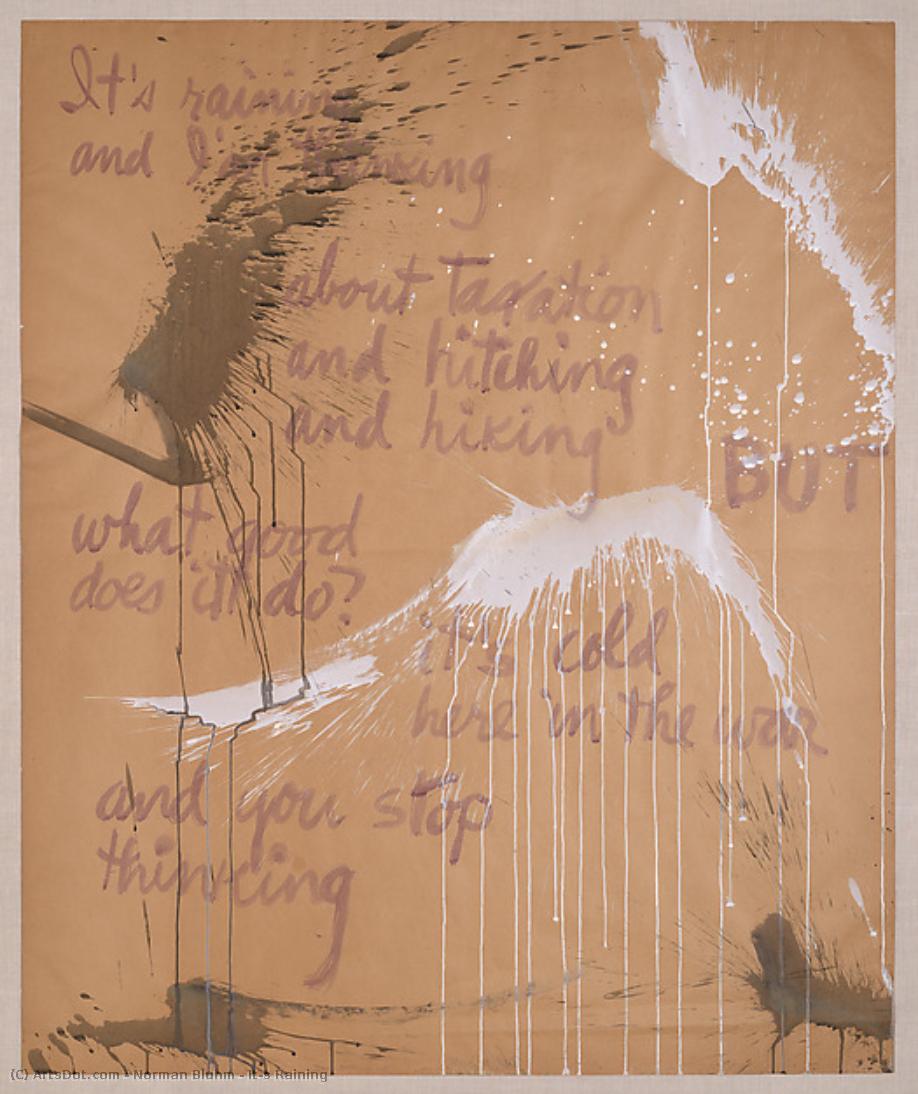 It's raining
and I'm thinking
about taxation
and hitching
and hiking
BUT
what good
does it do?
it's cold
here in the war
and you stop
thinking
(C) ArtsDot.com - Norman Bluhm - It-s Raining